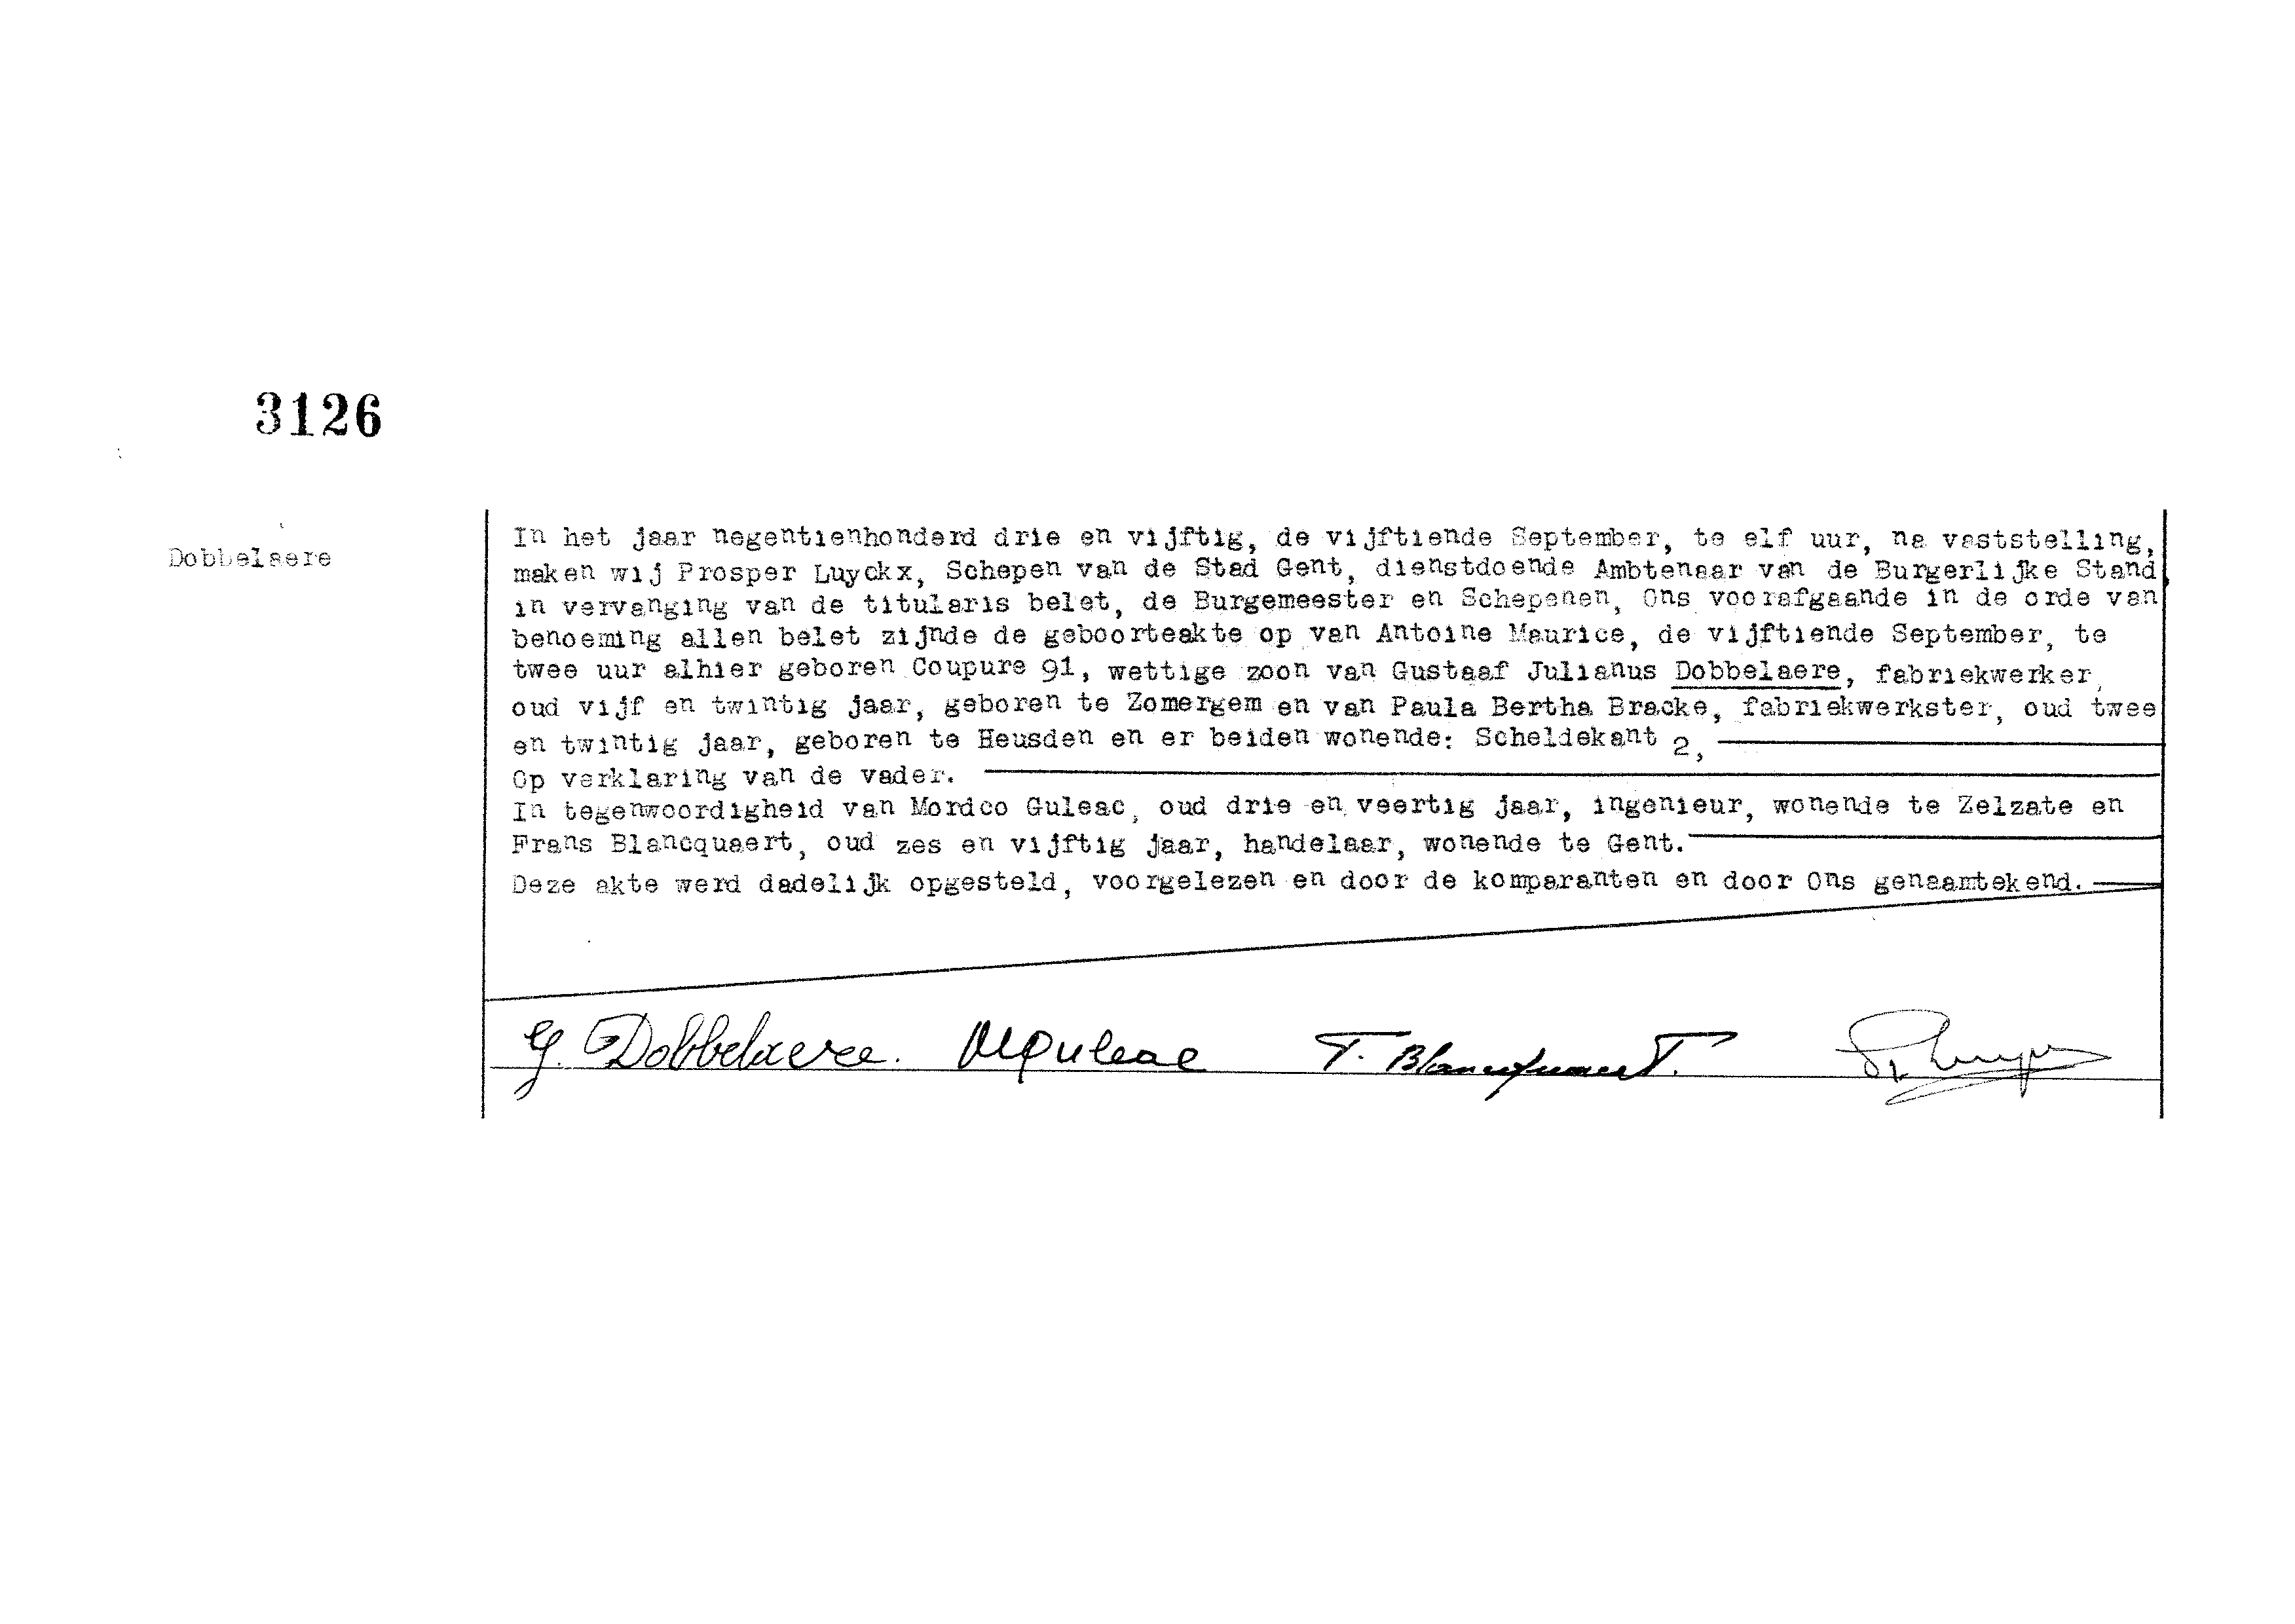 3126
Dobbelaere
In het jaar negentienhonderd drie en vijftig, de vijftiende September, te elf uur, na vaststelling,
maken wij Prosper Luyckx, Schepen van de Stad Gent, dienstdoende Ambtenaar van de Burgerlijke Stand,
in vervanging van de titularis belet, de Burgemeester en Schepenen, Ons voorafgaande in de orde van
benoeming allen belet zijnde de geboorteakte op van Antoine Maurice, de vijftiende September, te
twee uur alhier geboren Coupure 91, wettige zoon van Gustaaf Julianus Dobbelaere, fabriekwerker,
oud vijf en twintig jaar, geboren te Zomergem en van Paula Bertha Bracke, fabriekwerkster, oud twee
en twintig jaar, geboren te Heusden en er beiden wonende: Scheldekant 2,
Op verklaring van de vader.
In tegenwoordigheid van Mordco Guleac, oud drie en veertig jaar, ingenieur, wonende te Zelzate en
Frans Blancquaert, oud zes en vijftig jaar, handelaar, wonende te Gent.
Deze akte werd dadelijk opgesteld, voorgelezen en door de komparanten en door Ons genaamtekend.
G. Dobbelaere. MGuleac F. Blancquaert.